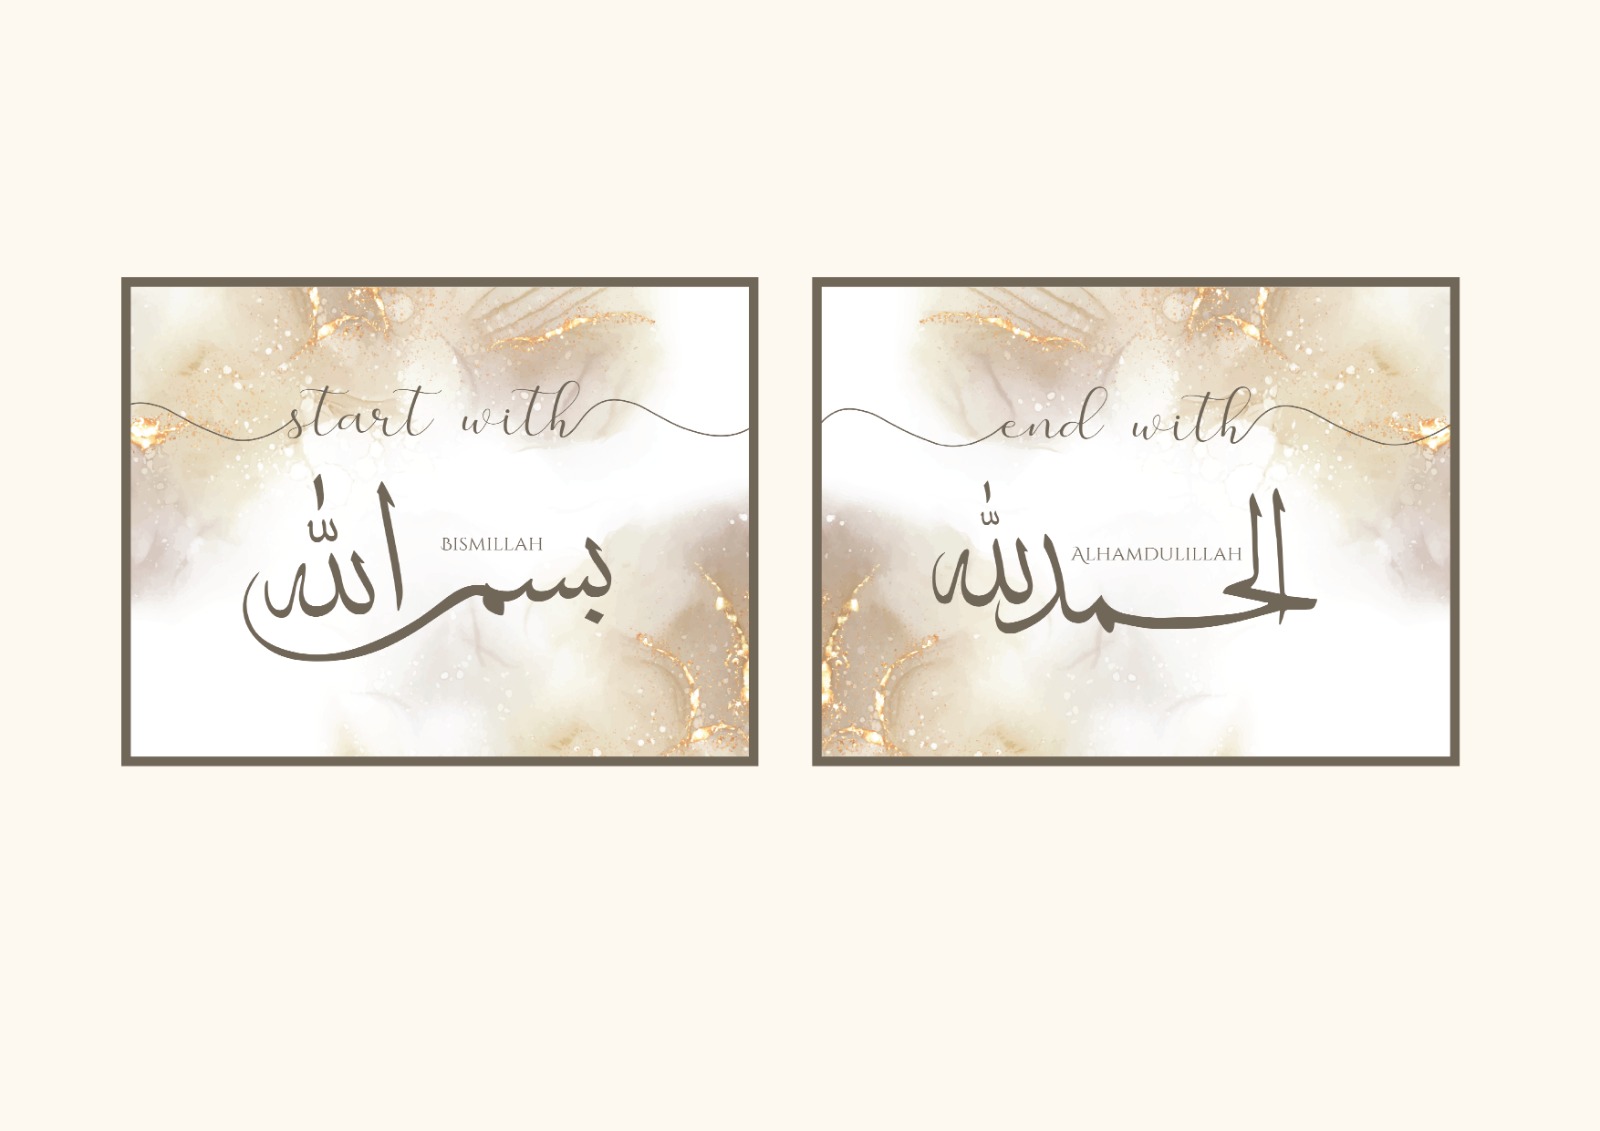 start with
بسم الله
Bismillah
end with
الحمد لله
Alhamdulillah